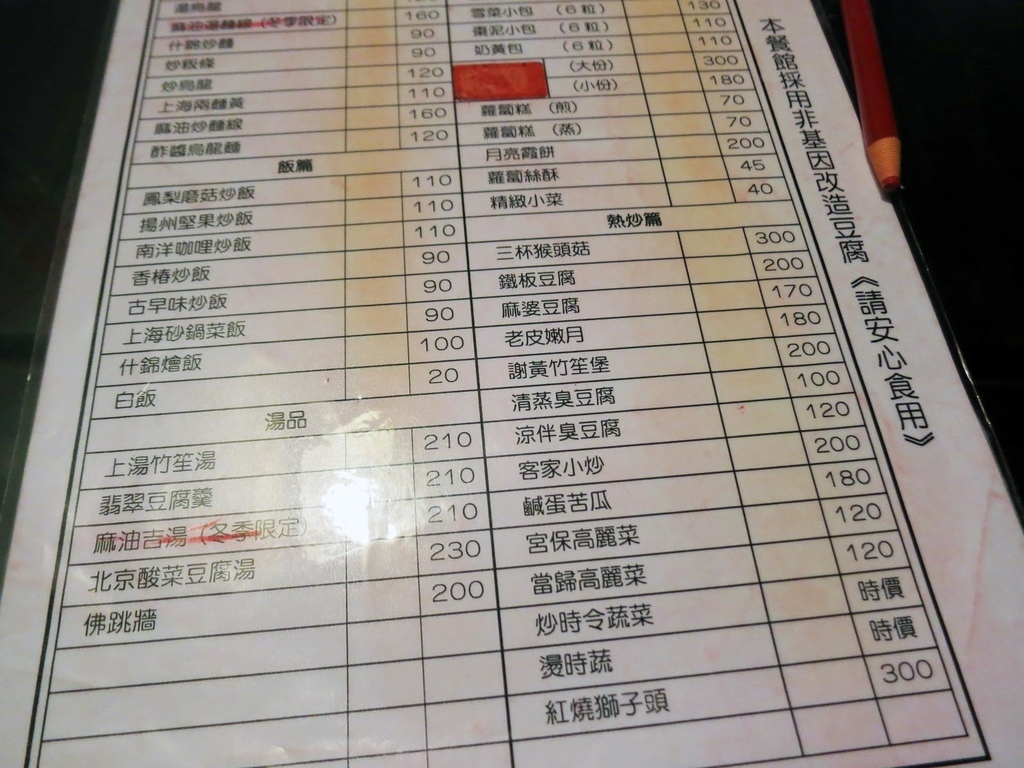 湯烏龍
麻油湯麵線（冬季限定） 160
什錦炒麵 90
炒粄條 90
炒烏龍 120
上海兩麵黃 110
麻油炒麵線 160
酢醬烏龍麵 120
飯篇
鳳梨磨菇炒飯 110
揚州堅果炒飯 110
南洋咖哩炒飯 110
香椿炒飯 90
古早味炒飯 90
上海砂鍋菜飯 90
什錦燴飯 100
白飯 20
湯品
上湯竹笙湯 210
翡翠豆腐羹 210
麻油吉湯（冬季限定） 210
北京酸菜豆腐湯 230
佛跳牆 200
雪菜小包（6粒） 130
棗泥小包（6粒） 110
奶黃包（6粒） 110
（大份） 300
（小份） 180
蘿蔔糕（煎） 70
蘿蔔糕（蒸） 70
月亮霞餅 200
蘿蔔絲酥 45
精緻小菜 40
熱炒篇
三杯猴頭菇 300
鐵板豆腐 200
麻婆豆腐 170
老皮嫩月 180
謝黃竹笙堡 200
清蒸臭豆腐 100
涼伴臭豆腐 120
客家小炒 200
鹹蛋苦瓜 180
宮保高麗菜 120
當歸高麗菜 120
炒時令蔬菜 時價
燙時蔬 時價
紅燒獅子頭 300
本餐館採用非基因改造豆腐《請安心食用》